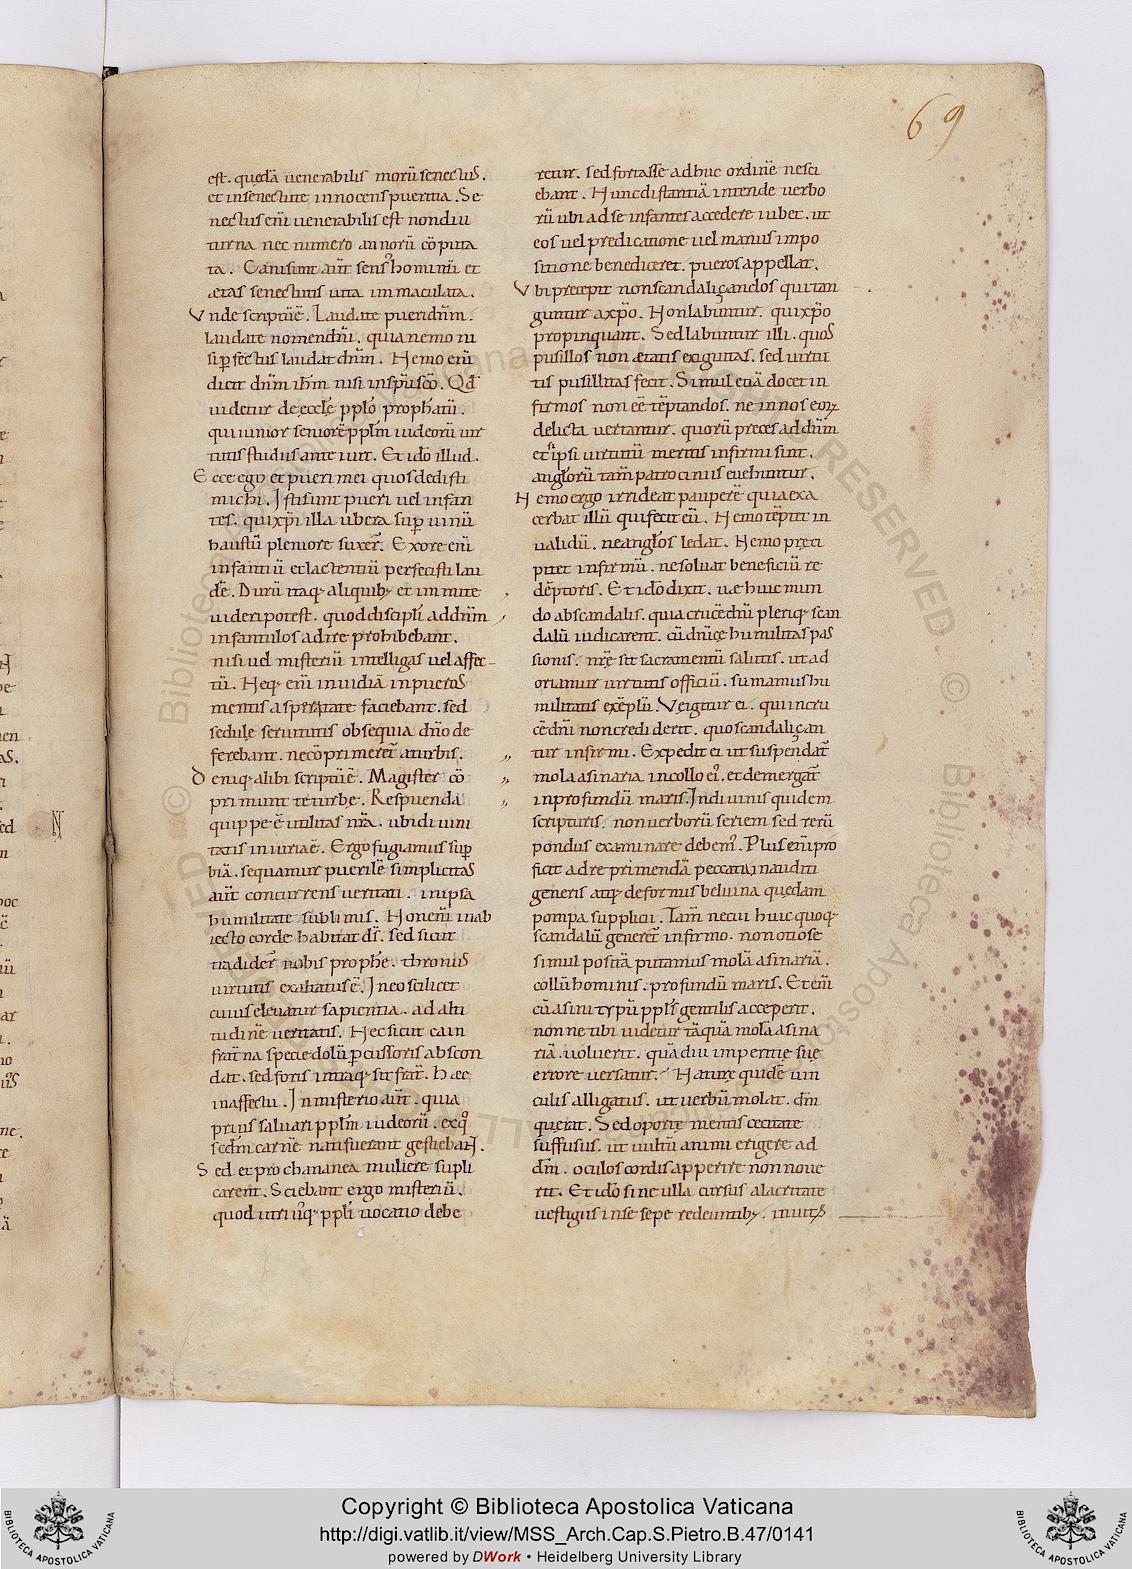 69
est. quedā uenerabilis morū senectus.
et insenectute innocens pueritia. Se
nectus eni uenerabilis est non diu
turna nec numero annorū cōputa
ta. Cani sunt aūt sensꝰ hominū et
ætas senectutis uita immaculata.
Vnde scriptū ē. Laudate pueri dnm̄.
laudate nomen dnī. quia nemo ni
si ꝑfectus laudat dnm̄. Nemo enī
dicit dnm̄ ihm̄ nisi in spū scō. Qđ
uidetur de eccłę ppło prophatū.
qui iunior seniorē pplm̄ iudeorū uir
tutis studiis ante iuit. Et ido illud.
Ecce ego et pueri mei quos dedisti
michi. Isti sunt pueri uel infan
tes. qui xpi illa ubera suꝑ uinū
haustu pleniore suxer̄. Ex ore enī
infantiū et lactentiū perfecisti lau
dē. Durū itaq; aliquib; et inmite
uideri potest. quod discipli ad dnm̄
infantulos adire prohibebant.
nisi uel misteriū intelligas uel affec
tū. Neq; enī inuidiā in pueros
mentis asperitate faciebant. sed
sedulę seruitutis obsequia dnō de
ferebant. ne cōprimeret̄ a turbis.
Deniq; alibi scriptū ē. Magister cō
primunt te turbę. Respuenda
quippe ē utilitas nrā. ubi diuini
tatis iniuria ē. Ergo fugiamus suꝑ
biā. sequamur puerilē simplicitas
aūt concurrens ueritati. in ipsa
humilitate sublimis. Non enī in ab
iecto corde habitat ds̄. sed sicut
tradider̄ nobis prophę. thronus
uirtutis exaltatus ē. In eo scilicet
cuius eleuatur sapientia. ad alti
tudinē ueritatis. Nec sicut cain
fraī na specie dolū ꝑcussoris abscon
dat. sed foris intraq; sit frat̄. hæc
in affectu. In misterio aūt. quia
prius saluari pplm̄ iudeorū. ex q̊
scdm̄ carnē nati fuerant gestiebant.
Sed et pro chananea muliere supli
carent. Sciebant ergo misteriū.
quod utriusq; ppli uocatio debe
retur. sed fortasse adhuc ordinē nesci
ebant. Nunc distantiā intende uerbo
rū ubi ad se infantes accedere iubet. ut
eos uel predicatione uel manus impo
sitione benediceret. pueros appellat.
Vbi precepit non scandaliçandos qui tan
guntur a xp̄o. Non labuntur. qui xp̄o
propinquant. Sed labuntur illi. quos
pusillos non ætatis exiguitas. sed uirtu
tis pusillitas fecit. Simul etiā docet in
firmos non eē tēptandos. ne in nos eoꝝ
delicta uertantur. quorū preces ad dn̄m
etsi ipsi uirtutū meritis infirmi sunt.
angłorū tam̄ patrociniis euehuntur.
Nemo ergo irrideat pauperē quia exa
cerbat illū qui fecit eū. Nemo tēptet in
ualidū. ne angłos ledat. Nemo pręci
pitet infirmū. ne soluat beneficiū re
dēptoris. Et ido dixit. uæ huic mun
do ab scandalis. quia crucē dnī pleriq; scan
dalū iudicarent. cū dnīcę humilitas pas
sionis. nrę sit sacramentū salutis. ut ad
oriamur uirtutis officiū. sumamus hu
militatis exēplū. Vę igitur ei. qui in cru
cē dnī non crediderit. quo scandaliçan
tur infirmi. Expedit ei ut suspendat̄
mola asinaria in collo eī. et demergat̄
in profundū maris. In diuinis quidem
scripturis. non uerborū seriem sed rerū
pondus examinare debemꝰ. Plus enī pro
ficit ad reprimendā peccatū inauditi
generis atq; deformis beluina quędam
pompa supplicii. Tam̄ ne cui huic quoq;
scandalū generet̄ infirmo. non otiose
simul positā putamus molā asinariā.
collū hominis. profundū maris. Et enī
cū asini typū pplꝰ gentilis acceperit.
nonne tibi uidetur tāquā molā asina
riā. uoluerit. quādiu imperitię suę
errore uersatur. Naturę quidē uin
culis alligatus. ut uerbū molat. dm̄
querat. Sed oportę mentis cecitate
suffusus. ut uultū animi erigere ad
dm̄. oculos cordis apperire non noue
rit. Et ido sine ulla cursus alacritate
uestigiis in se sepe redeuntib;. inuitꝰ
Copyright © Biblioteca Apostolica Vaticana
http://digi.vatlib.it/view/MSS_Arch.Cap.S.Pietro.B.47/0141
powered by DWork • Heidelberg University Library
BIBLIOTECA APOSTOLICA VATICANA
BIBLIOTECA APOSTOLICA VATICANA